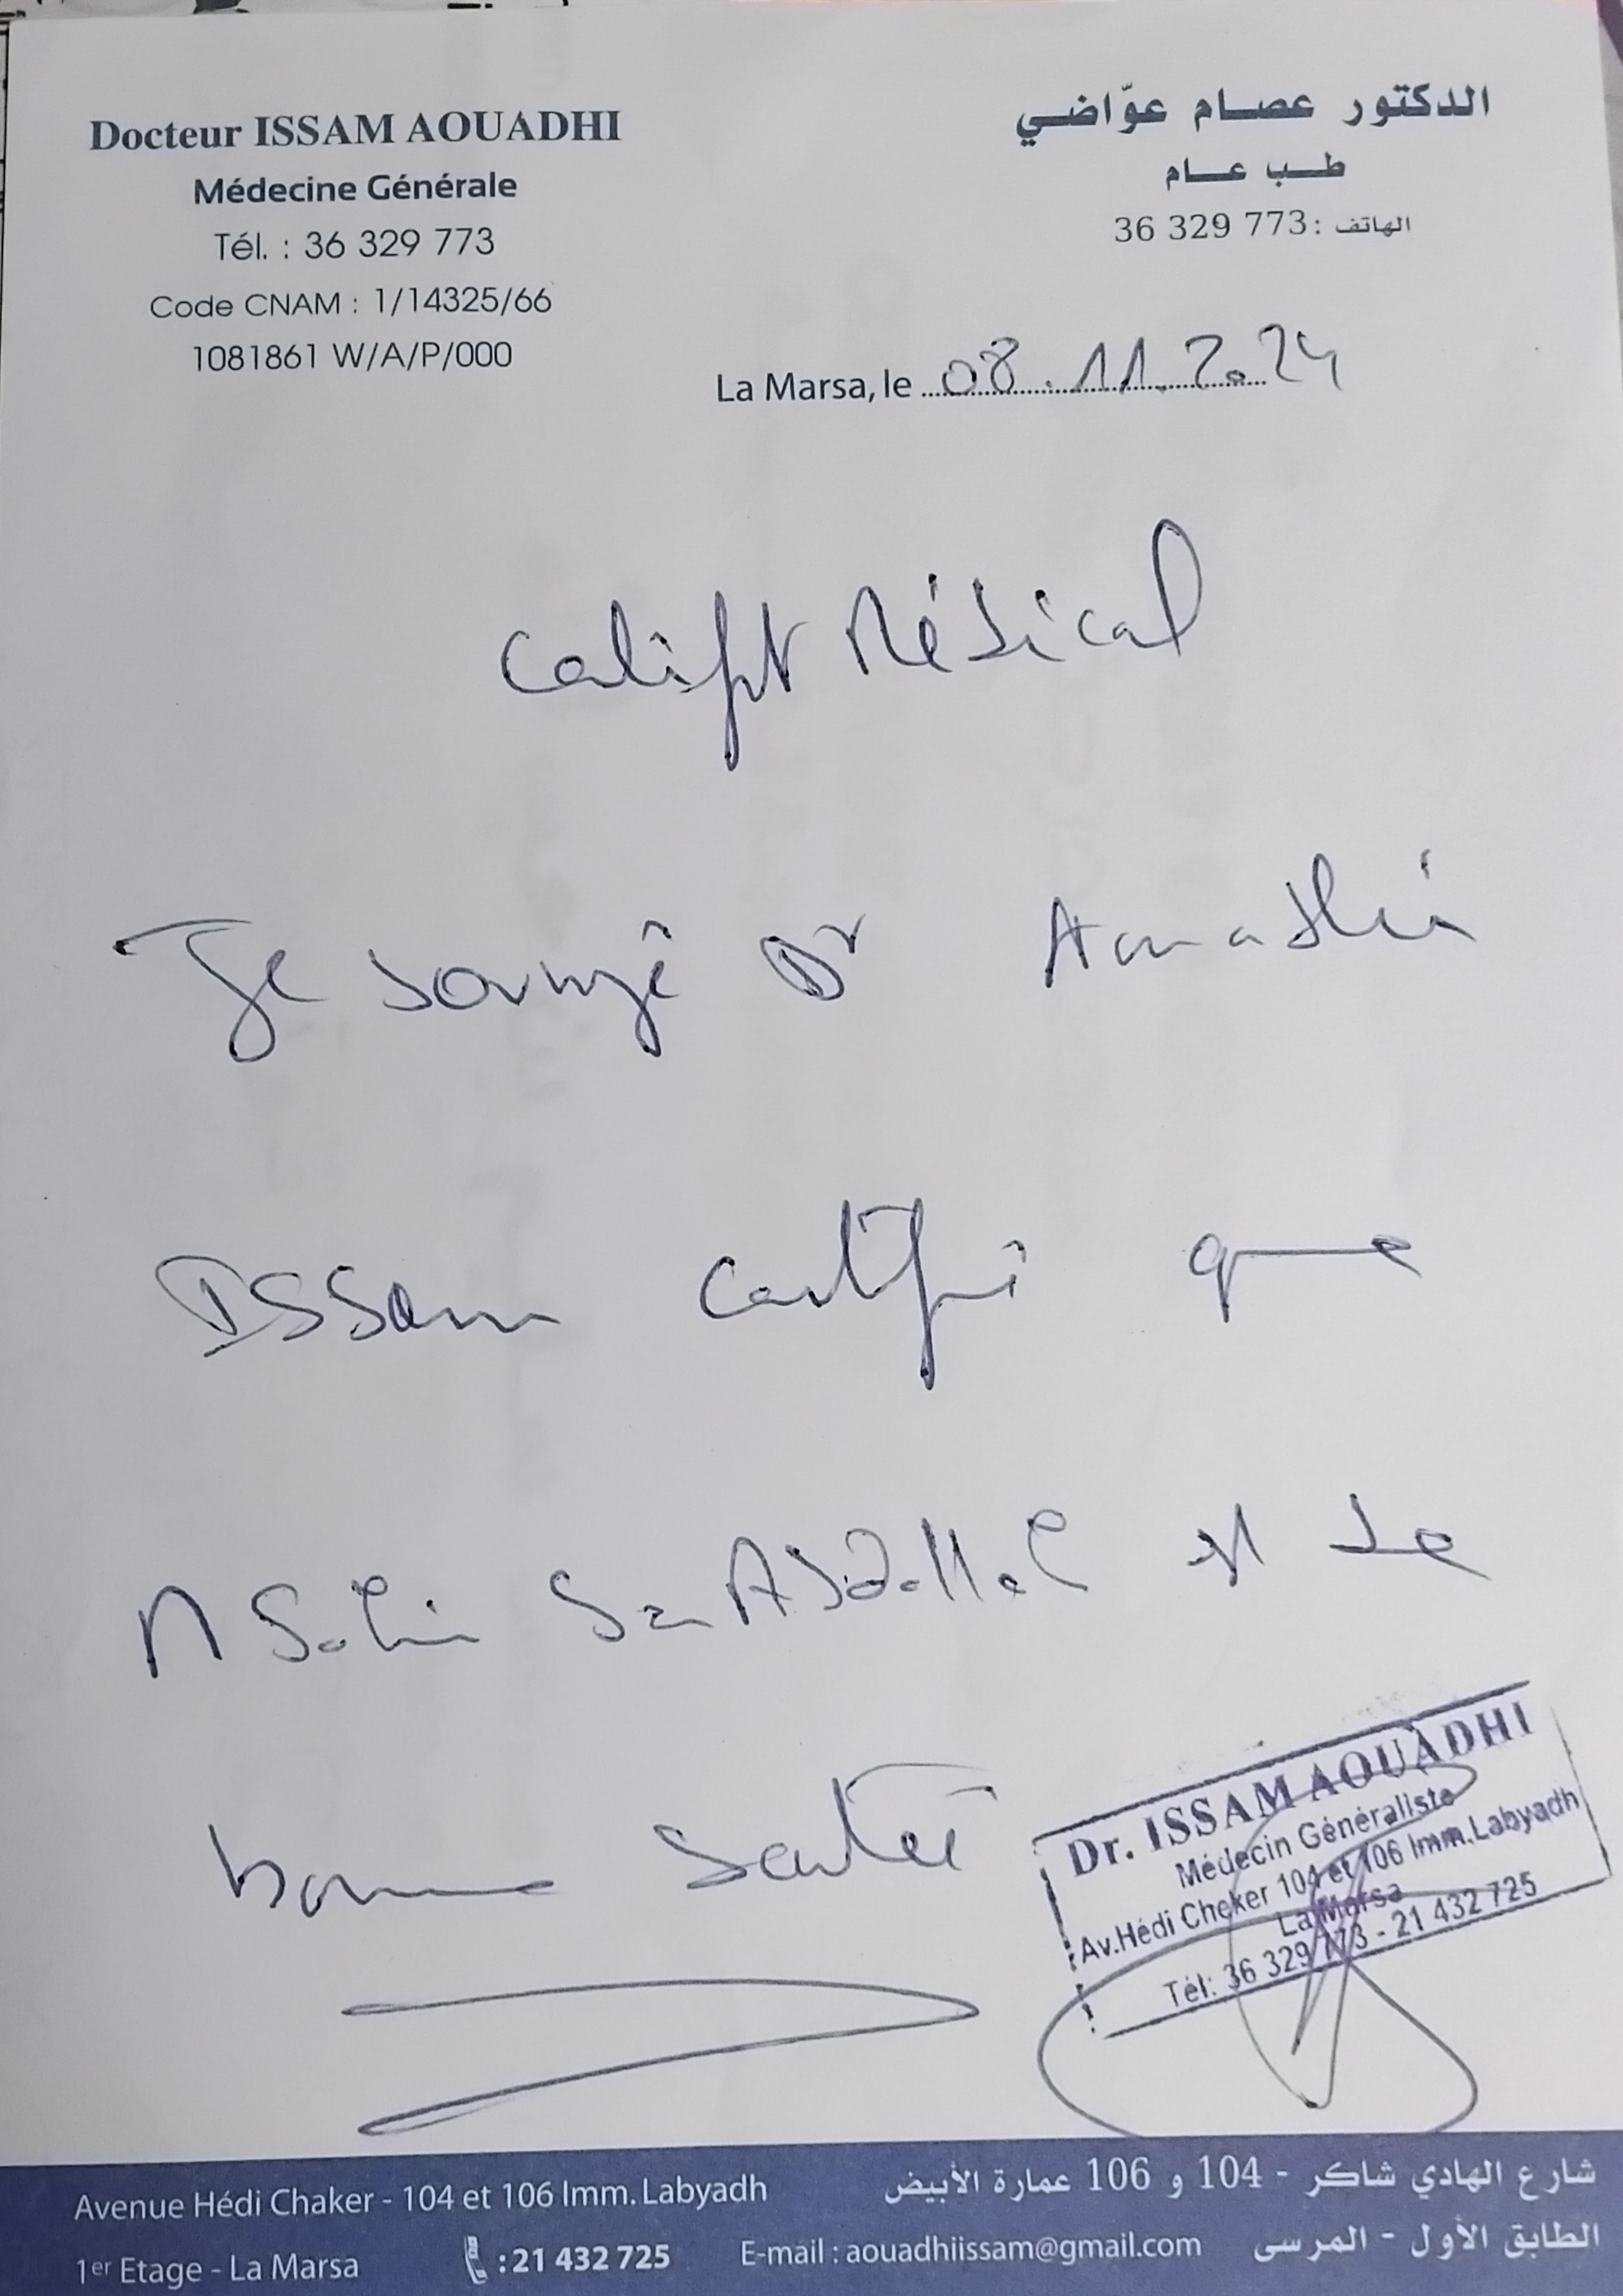 Docteur ISSAM AOUADHI
Médecine Générale
Tél. : 36 329 773
Code CNAM : 1/14325/66
1081861 W/A/P/000
الدكتور عصام عوّاضي
طب عام
الهاتف : 36 329 773
La Marsa, le 08.11.2024
Certificat Médical
Je soussigné Dr Aouadhi
ISSam certifie que
M Salim Ben Abdallah est de
bonne santé
Dr. ISSAM AOUADHI
Médecin Généraliste
Av.Hédi Cheker 104 et 106 Imm.Labyadh
La Marsa
Tél: 36 329 773 - 21 432 725
Avenue Hédi Chaker - 104 et 106 Imm. Labyadh
1er Etage - La Marsa
: 21 432 725
E-mail : aouadhiissam@gmail.com
شارع الهادي شاكر - 104 و 106 عمارة الأبيض
الطابق الأول - المرسى